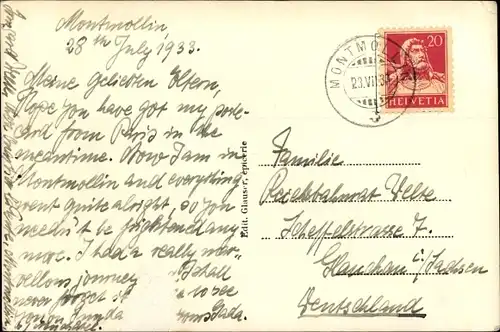 Montmollin
28th July 1933.
Meine geliebten Eltern,
Hope you have got my post-
card from Paris in the
meantime. Now I am in
Montmollin and everything
went quite alright, so you
needn't be frightened any
more. I had a really mar-
vellous journey
I shall
never forget it
to see
MONTMOLLIN
23.VII.33
20
HELVETIA
Edit. Glauser, épicerie
Familie
Reichsbahnrat Welte
Scheffelstrasse 7.
Glauchau i/Sachsen
Deutschland